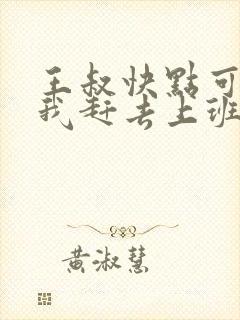 王叔快點可
我赶去上班
黃淑慧